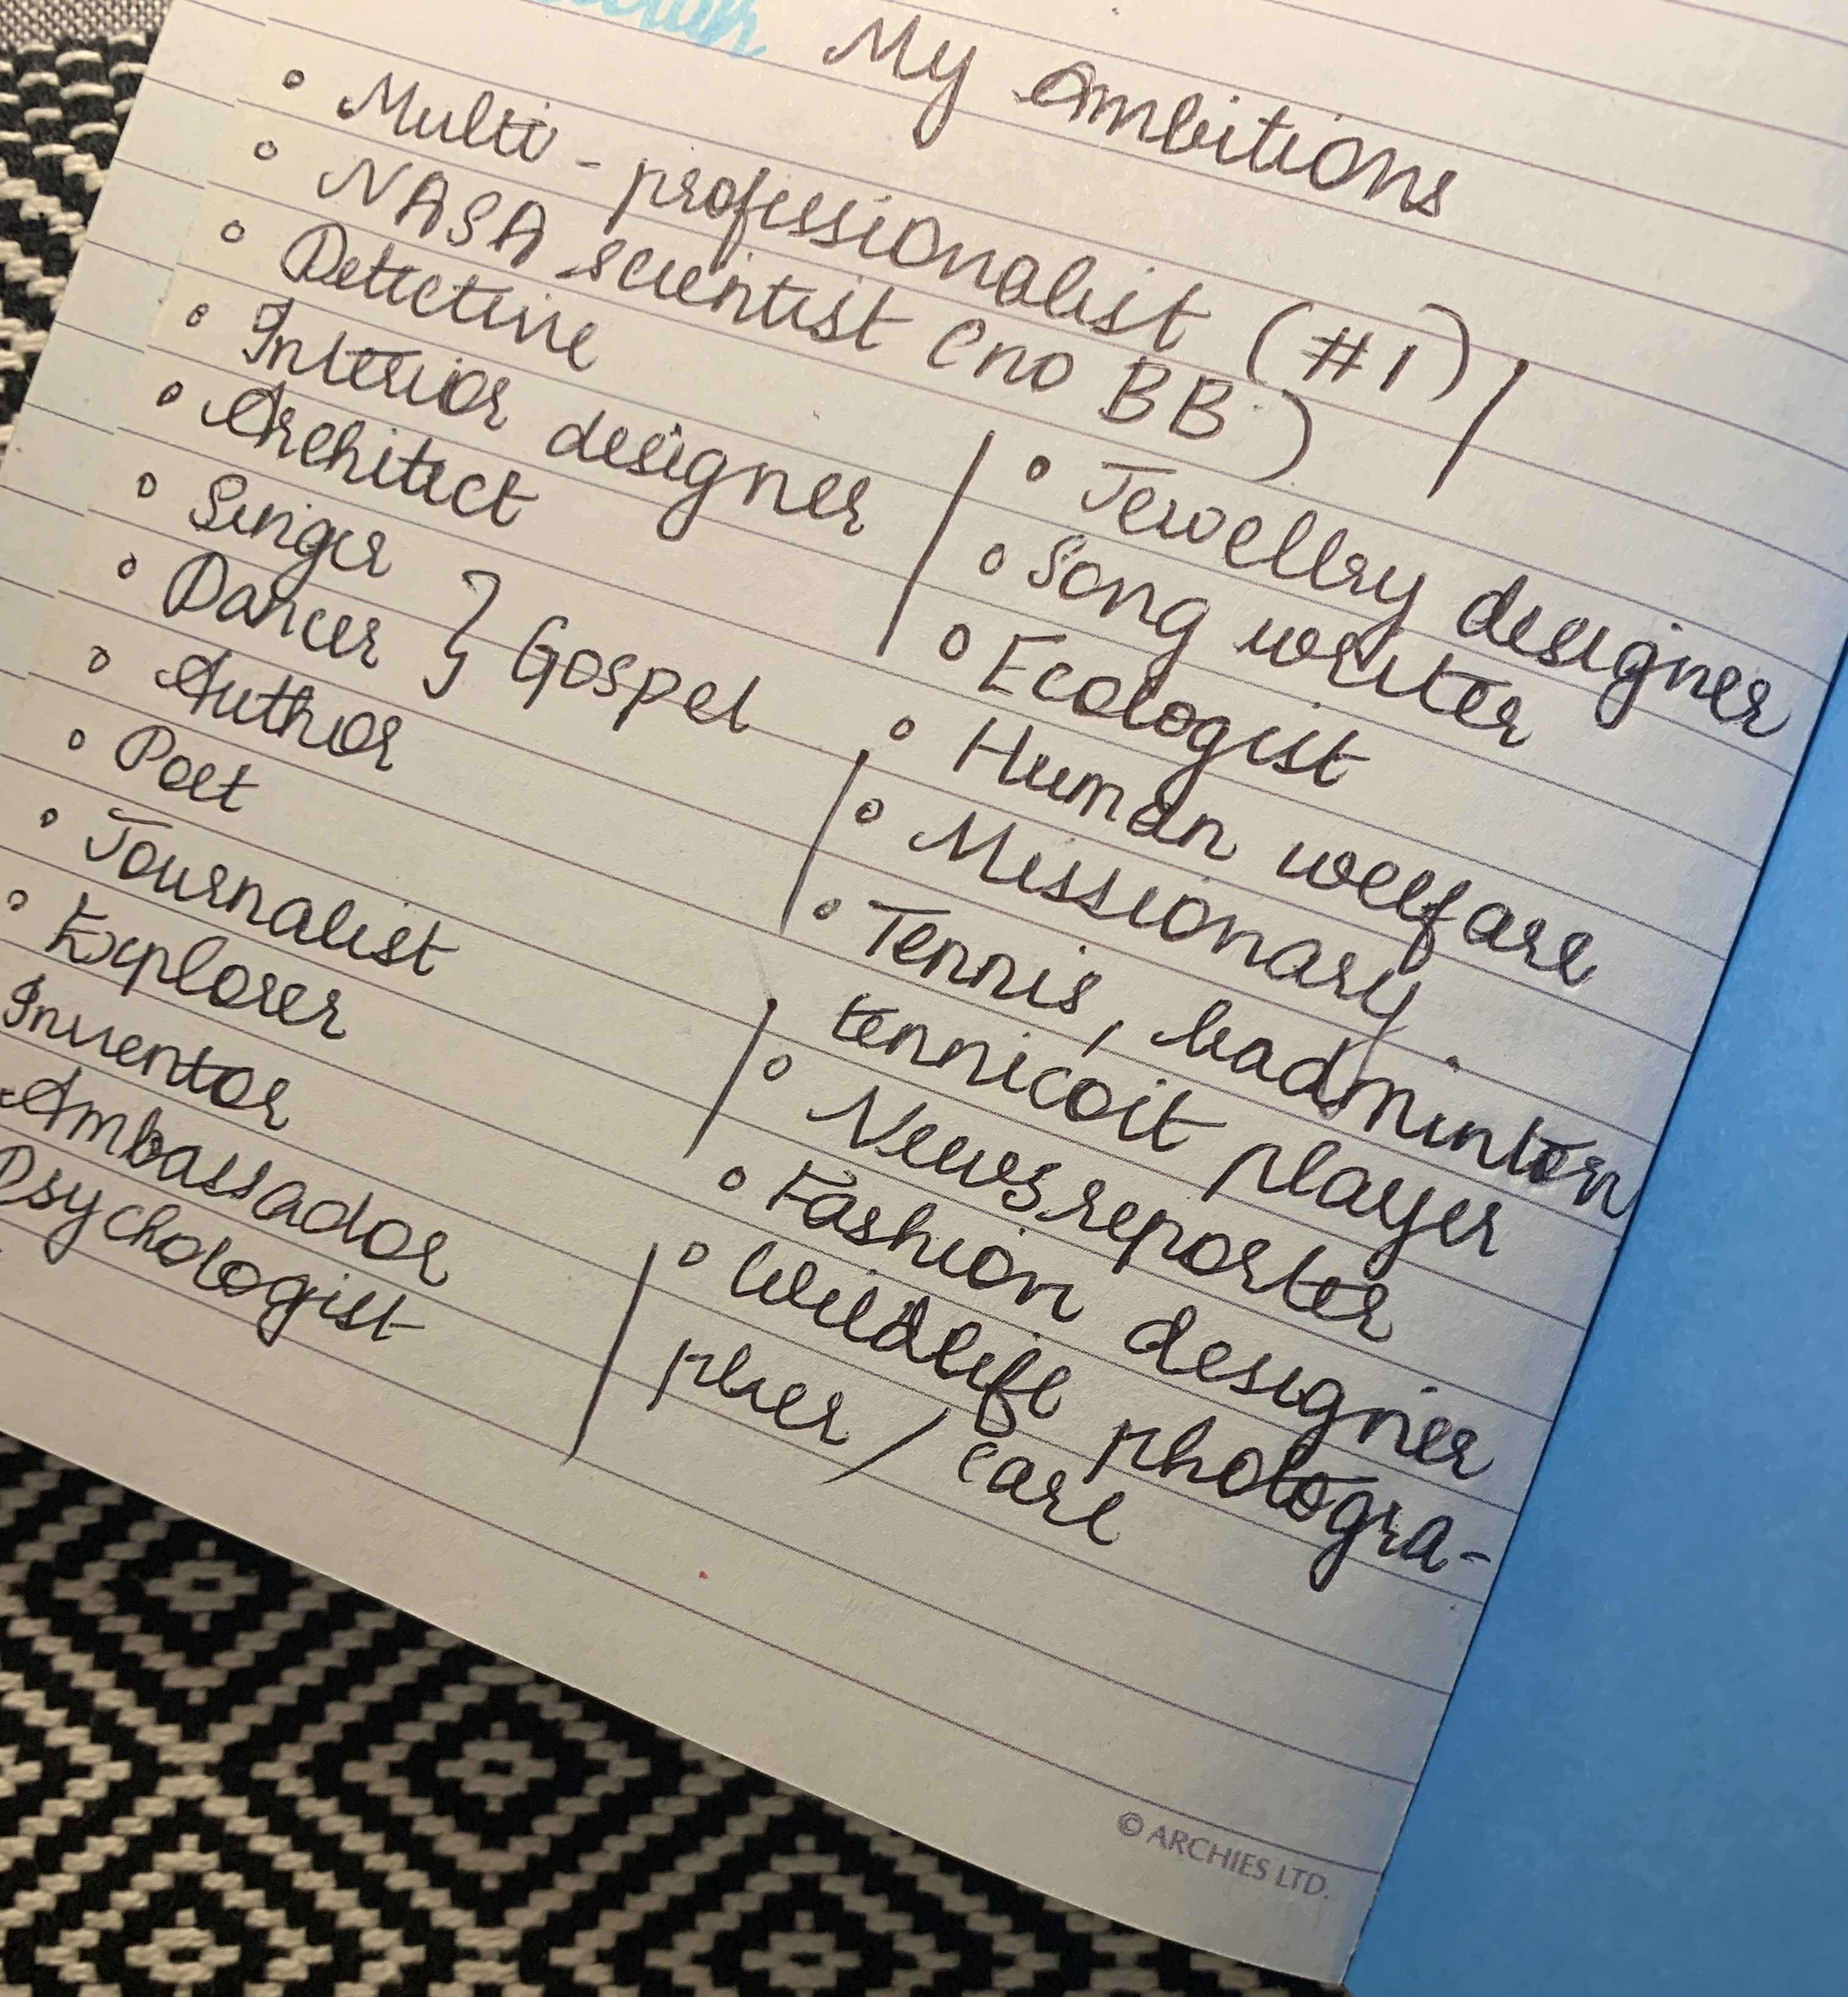 My Ambitions
• Multi-professionalist (#1)
• NASA scientist (no BB)
• Detective
• Interior designer
• Architect
• Singer
• Dancer } Gospel
• Author
• Poet
• Journalist
• Explorer
Inventor
Ambassador
Psychologist
• Jewellry designer
• Song writer
• Ecologist
• Human welfare
• Missionary
• Tennis, badminton
tennicoit player
• Newsreporter
• Fashion designer
• Wildlife photogra-
pher / care
© ARCHIES LTD.